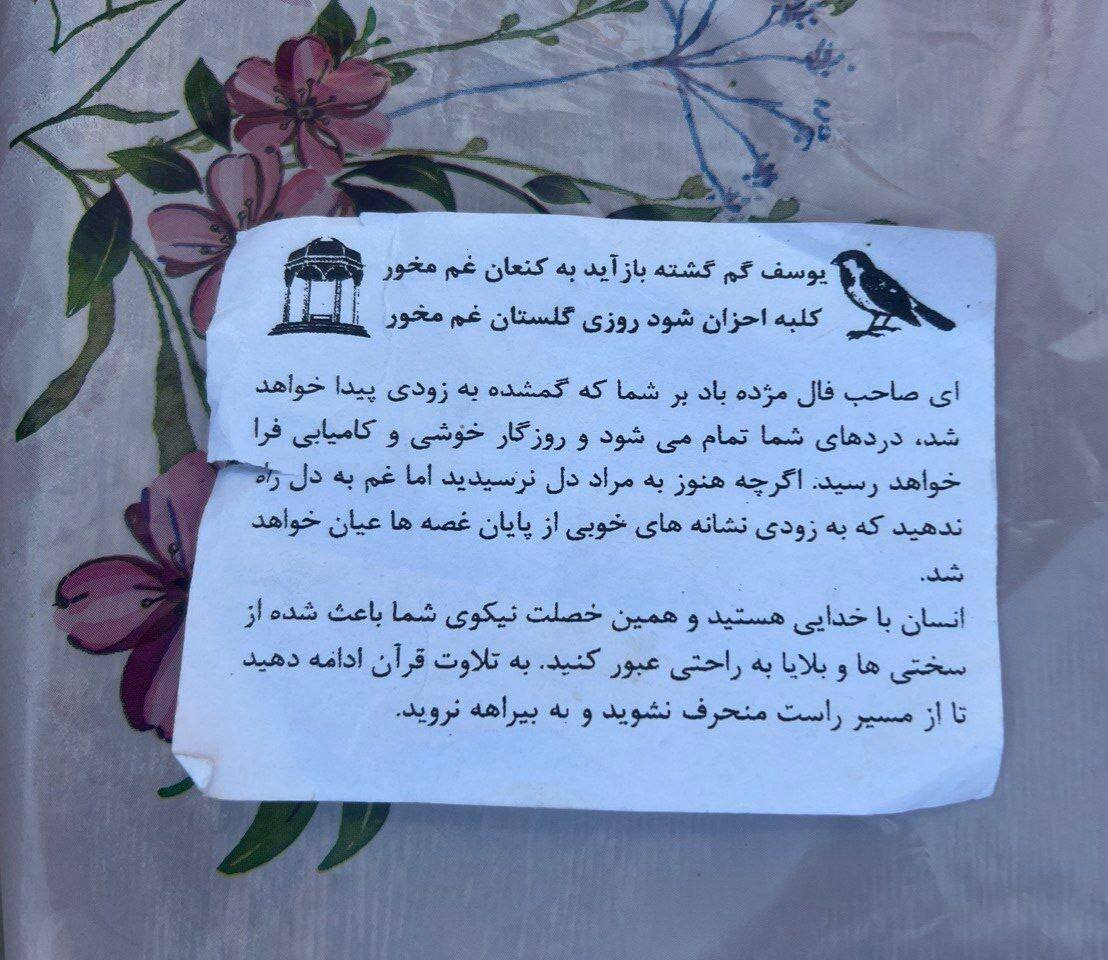 یوسف گم گشته باز آید به کنعان غم مخور
کلبه احزان شود روزی گلستان غم مخور
ای صاحب فال مژده باد بر شما که گمشده به زودی پیدا خواهد
شد، دردهای شما تمام می شود و روزگار خوشی و کامیابی فرا
خواهد رسید. اگرچه هنوز به مراد دل نرسیدید اما غم به دل راه
ندهید که به زودی نشانه های خوبی از پایان غصه ها عیان خواهد
شد.
انسان با خدایی هستید و همین خصلت نیکوی شما باعث شده از
سختی ها و بلایا به راحتی عبور کنید. به تلاوت قرآن ادامه دهید
تا از مسیر راست منحرف نشوید و به بیراهه نروید.